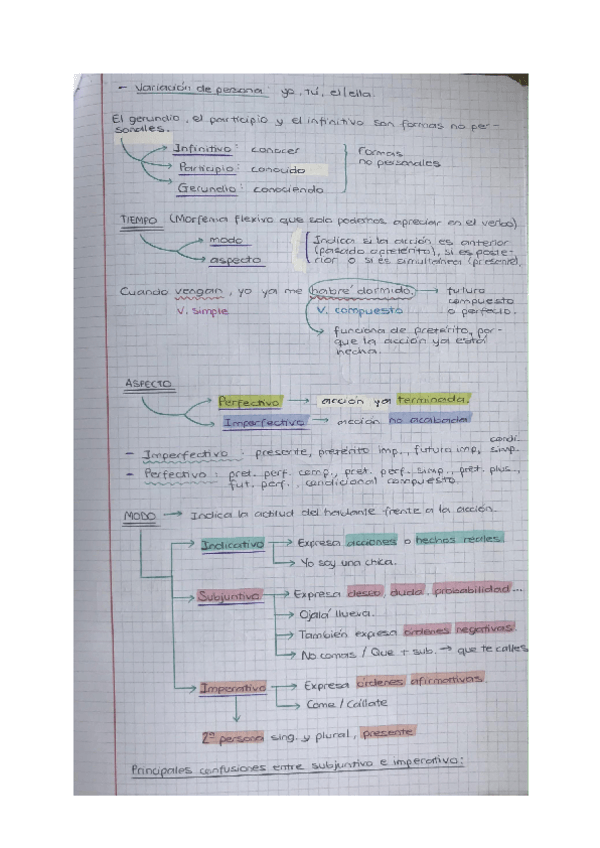 - Variación de persona: yo, tú, el/ella.
El gerundio, el participio y el infinitivo son formas no per-
sonales.
Infinitivo: conocer
Participio: conocido
Gerundio: conociendo
Formas
no personales
TIEMPO (Morfema flexivo que solo podemos apreciar en el verbo)
modo
aspecto
Indica si la acción es anterior
(pasado o pretérito), si es poste-
rior o si es simultánea (presente).
Cuando vengan, yo ya me habré dormido. → futuro
compuesto
o perfecto.
V. simple
V. compuesto
funciona de pretérito, por-
que la acción ya está
hecha.
ASPECTO
Perfectivo → acción ya terminada.
Imperfectivo → acción no acabada
- Imperfectivo: presente, pretérito imp., futuro imp, condi. simp.
- Perfectivo: pret. perf. comp., pret. perf. simp., pret. plus.,
fut. perf., condicional compuesto.
MODO → Indica la actitud del hablante frente a la acción.
Indicativo → Expresa acciones o hechos reales
Yo soy una chica.
Subjuntivo → Expresa deseo, duda, probabilidad...
Ojalá llueva.
También expresa órdenes negativas.
No comas / Que + sub. → que te calles
Imperativo → Expresa órdenes afirmativas.
Come / Cállate
2ª persona sing. y plural, presente
Principales confusiones entre subjuntivo e imperativo: